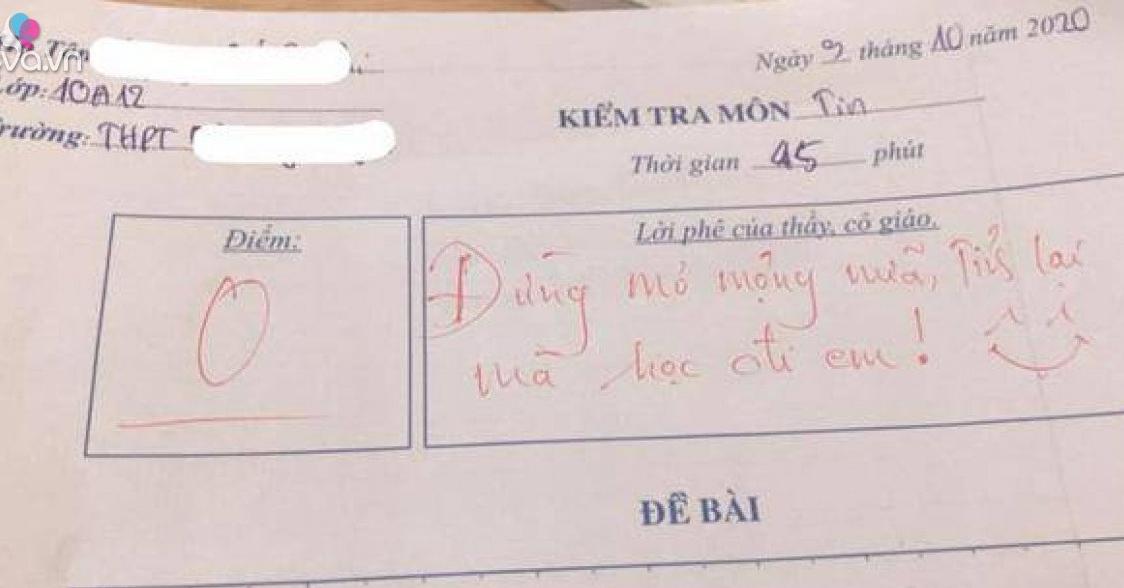 va.vn
Tên
Lớp: 10A12
Trường: THPT
Ngày 9 tháng 10 năm 2020
KIỂM TRA MÔN Tin
Thời gian 45 phút
Điểm:
0
Lời phê của thầy, cô giáo.
Đừng mơ mộng nữa, Tỉnh lại
mà học đi em!
ĐỀ BÀI